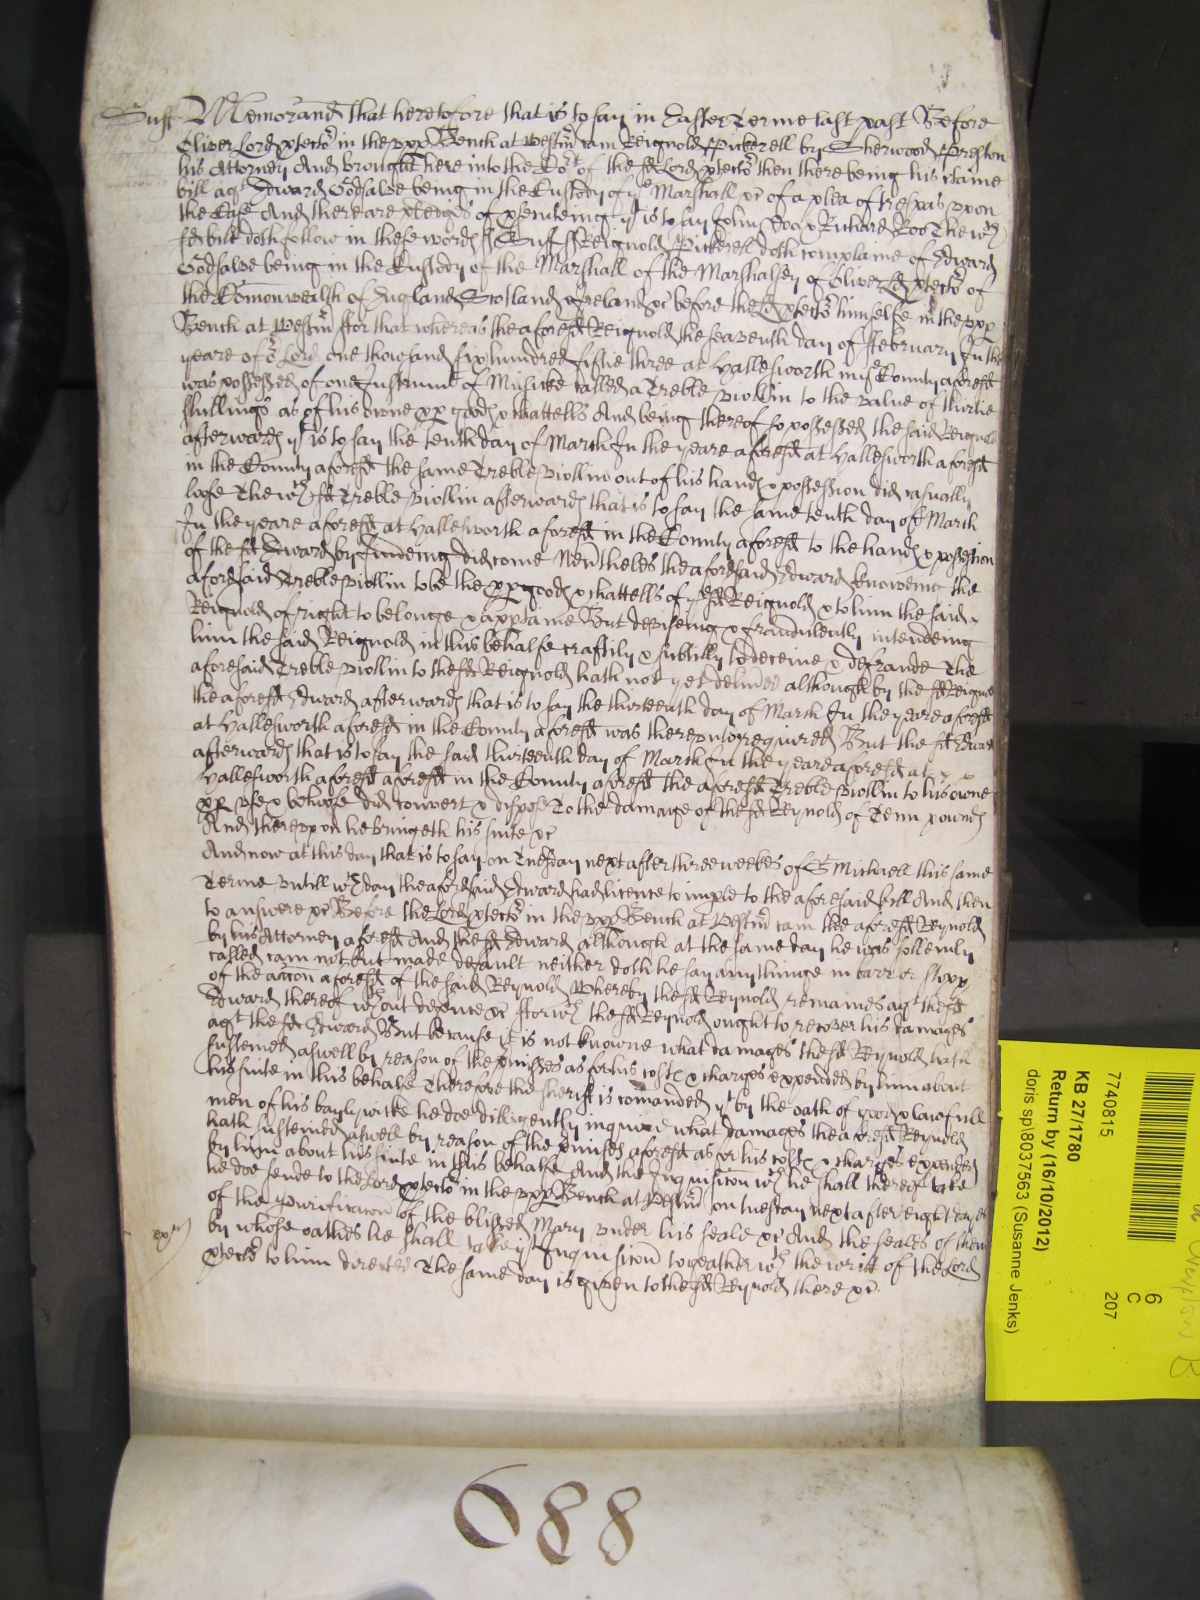 Suff Memorand That heretofore that is to say in Easter Terme last past Before
Oliver Lord ptector in the upp Bench at Westm cam Reignold Pickerell by Sherwood Preston
his Attorney And brought here into the Cort of the sd Lord ptector then there being his certaine
bill agt Edward Godsalve being in the Custody of ye Marshall &c of a plea of trespas upon
the Case And there are pledges of psenteing yt is to say John Doo & Richard Roo The wch
sd bill doth follow in these words ss Suff ss Reignold Pickerell doth complaine of Edward
Godsalve being in the Custody of the Marshall of the Marshalsey of Oliver Ld ptector of
the Comonwealth of England Scotland & Ireland &c before the Ld ptector himselfe in the upp
Bench at Westm ffor that whereas the aforesd Reignold the seaventh day of ffebruary In the
yeare of or Lord one thowsand six hundred fiftie three at Hallesworth in ye County aforesd
was possessed of one Instrumt of Musicke called a Treble Viollin to the value of thirtie
shillings as of his owne pp goods & chattells And being thereof so possessed the said Reignold
afterwards yt is to say the tenth day of March In the yeare aforesd at Hallesworth aforesd
in the County aforesd the same Treble Viollin out of his hands & possession did casually
loose The wch sd Treble Viollin afterwards that is to say the same tenth day of March
In the yeare aforesd at Hallesworth aforesd in the County aforesd to the hands & possession
of the sd Edward by findeing did come Nevtheles the aforesaid Edward knoweing the
aforesaid Treble Viollin to be the pp goods & chattells of ye sd Reignold & to him the said
Reignold of right to belonge & apptaine But deviseing & fraudulently intendeing
him the said Reignold in this behalfe craftily & subtilly to deceive & defraude The
aforesaid Treble Viollin to the sd Reignold hath not yet delivred although by the sd Reignold
the aforesd Edward afterwards that is to say the thirteenth day of March In the yeare aforesd
at Hallesworth aforesd in the County aforesd was thereunto required But the sd Edward
afterwards that is to say the said thirteenth day of March In the yeare aforesd at
Hallesworth aforesd aforesd in the County aforesd the aforesd Treble Viollin to his owne
pp use & behoofe did convert & dispose To the damage of the sd Reynold of Tenn pounds
And thereupon he bringeth his suite &c
And now at this day that is to say on Tuesday next after three weekes of St Michaell this same
Terme untill wch day the aforesaid Edward had licence to imple to the aforesaid bill And then
to answere &c Before the Lord ptector in the upp Bench at Westm cam the aforesd Reynold
by his Attorney aforesd And the sd Edward although at the same day he was sollemly
called cam not but made default neither doth he say any thinge in barr or stopp
of the accon aforesd of the said Reynold Whereby the sd Reynold remaines agt the sd
Edward thereof wthout defence &c ffor wch the sd Reynold ought to recover his damages
agt the sd Edward But because it is not knowne what damages the sd Reynold hath
susteined aswell by reason of the pmisses as for his costs & charges expended by him about
his suite in this behalfe Therefore the sheriff is comanded yt by the oath of good & lawfull
men of his baylywicke he doe dilligently inquire what damages the aforesd Reynold
hath susteined aswell by reason of the pmises aforesd as for his costs & charges expended
by him about his suite in this behalfe And the Inquisicon wch he shall thereof take
he doe sende to the Lord ptector in the upp Bench at Westm on tuesday next after eight dayes
of the Purificacon of the blessed Mary under his seale &c And the seales of them
by whose oathes he shall take yt Inquisicon togeather wth the writt of the Lord
ptector to him directed The same day is given to the sd Reynold there &c
688
7740815
KB 27/1780
Return by (16/10/2012)
doris sp\8037563 (Susanne Jenks)
6
C
207